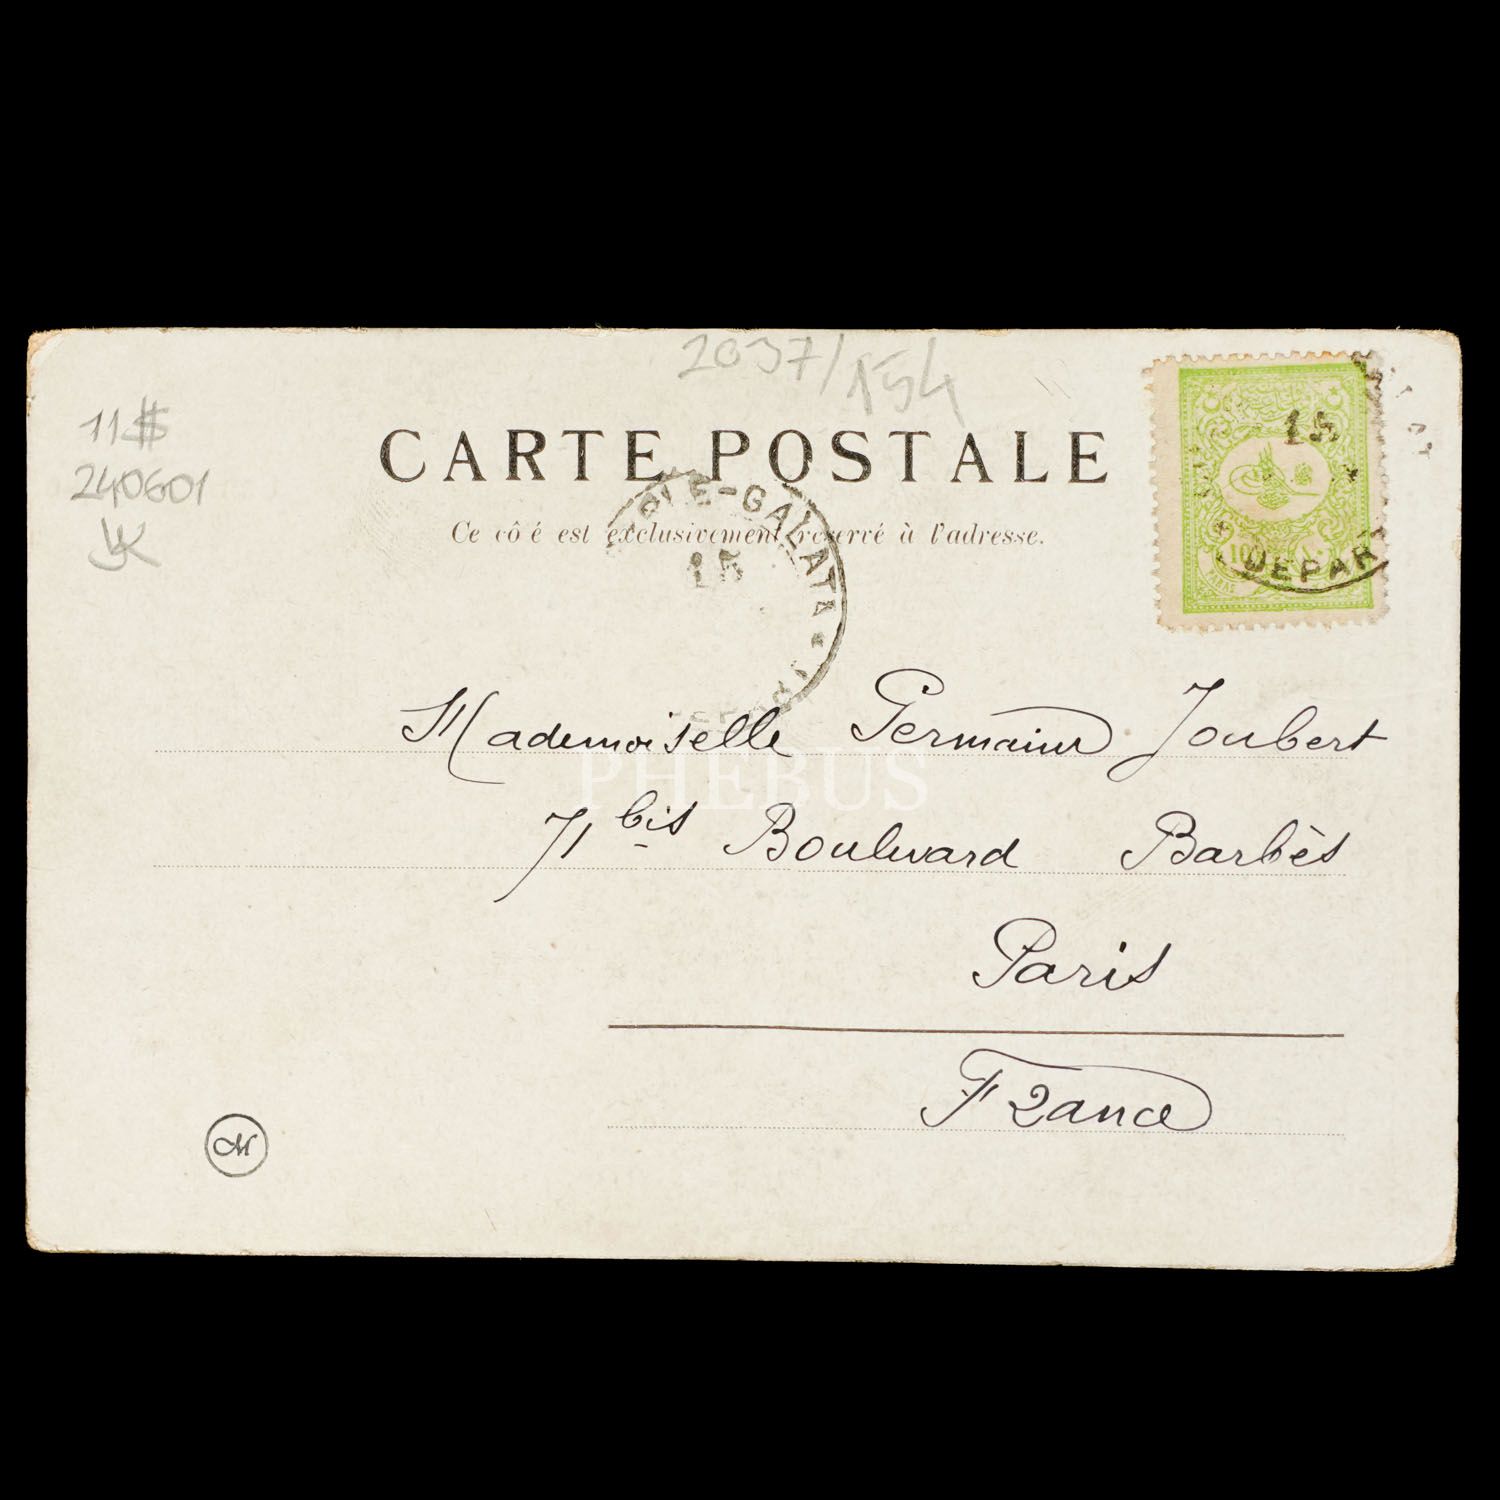 2037/154
11#
240601
CARTE POSTALE
Ce cô é est exclusivement reservé à l'adresse.
PLE-GALATA
15
15
DEPART
10
PARAS
Mademoiselle Germaine Joubert
PHEBUS
71 bis Boulevard Barbès
Paris
France
M